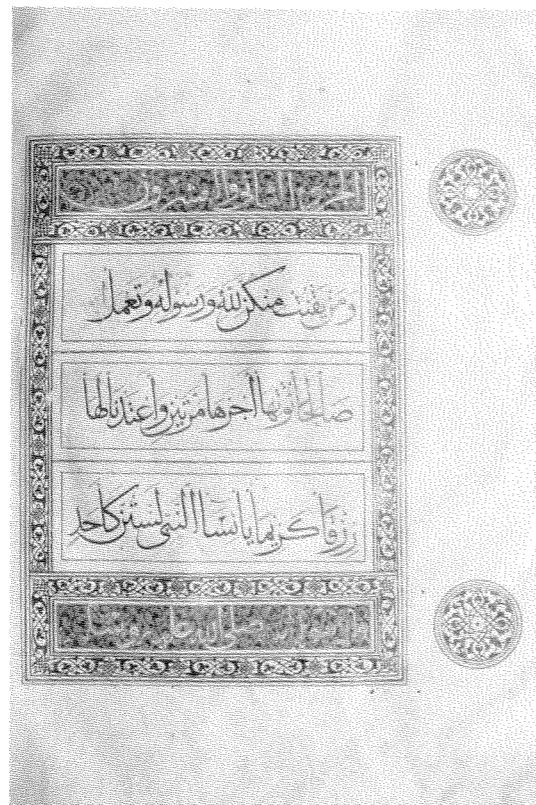 الجزء الثاني والعشرون من
ومن يقنت منكن لله ورسوله وتعمل
صالحا نؤتها أجرها مرتين واعتدنا لها
رزقا كريما يا نسآ النبي لستن كأحد
صلى الله عليه